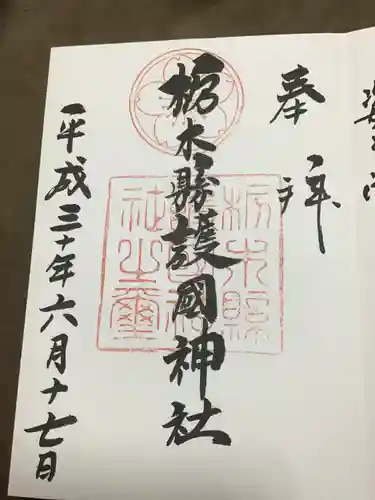 奉拝
栃木縣護國神社
栃木縣護國神社之璽
平成三十年六月十七日